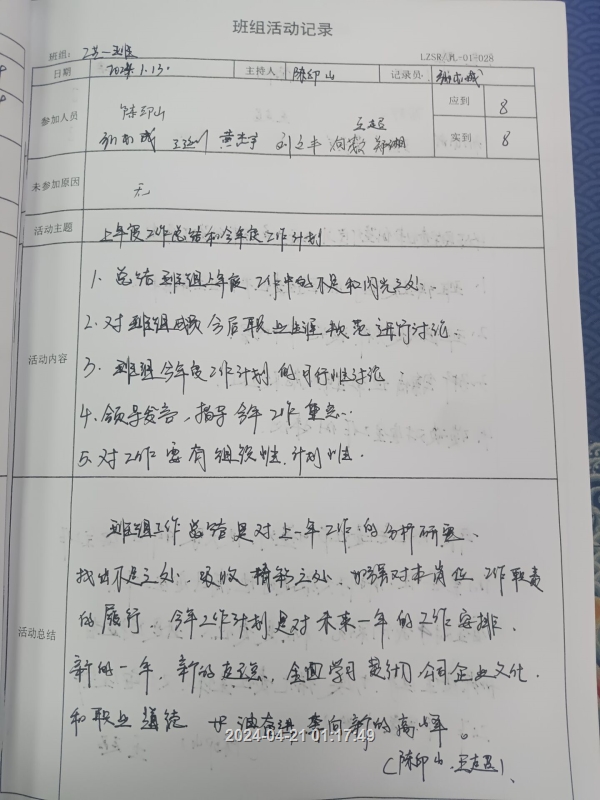 班组活动记录
班组： 工艺一班组 LZSR/JL-01-028
日期 2024.1.13. 主持人 陈印山 记录员
参加人员 陈印山 应到 8
黄杰宇 刘立丰 实到 8
未参加原因 无
活动主题 上年度工作总结和今年度工作计划
活动内容
1. 总结班组上年度工作中的不足和闪光之处.
2. 对班组成员今后职业生涯规范进行讨论.
3. 班组今年度工作计划的可行性讨论.
4. 领导发言，指导今年工作重点.
5. 对工作要有组织性、计划性.
活动总结
班组工作总结是对上一年工作的分析研究、
找出不足之处、吸收精彩之处，加强对本岗位工作职责
的履行，今年工作计划是对未来一年的工作安排，
新的一年，新的起点，全面学习 公司企业文化、
和职业道德 奔向新的高峰。
(陈印山、 )
2024-04-21 01:17:49